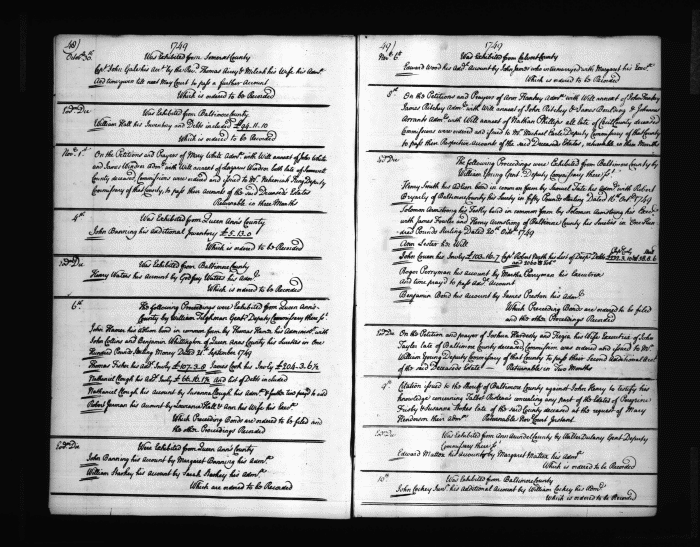 48/
1749
Octobr 30th
Was Exhibited from Somerset County
Capt John Gale his Acct by the Revd Thomas Airey & Milcah his Wife his Admx
And time given till next May Court to pass a further Account
Which is ordered to be Recorded
Eod Die
Was Exhibited from Baltimore County
William Hall his Inventory and Debts included £94.11.10
Which is ordered to be Recorded
Novr 1st
On the Petitions and Prayers of Mary White Admx with Will annext of John White
and James Windsor Admr with Will annext of Lazarus Windsor both late of Somerset
County deceased Commissions were ordered and issued to Mr Nehemiah King Deputy
Commissary of that County, to pass their Accounts of the said Deceaseds Estates
Returnable in three Months
4th
Was Exhibited from Queen Ann's County
John Banning his additional Inventory £5.13.0
Which is ordered to be Recorded
Eod Die
Was Exhibited from Baltimore County
Henry Waters his Account by Godfrey Waters his Admr
Which is ordered to be Recorded
6th
The following Proceedings were Exhibited from Queen Anns
County by William Tilghman Gent Deputy Commissary there
John Hamer his Admon bond in common form by Thomas Hamer his Administr with
John Collins and Benjamin Whittington of Queen Anns County his Sureties in One
Hundred Pounds Sterling Money Dated 21st September 1749
Thomas Fisher his addl Invty £107.3.8 James Cook his Invty £204.3.6½
Nathaniel Clough his addl Invty £66.16.1½ And List of Debts included
Nathaniel Clough his Account by Susanna Clough his Admx & further time prayd to add
Robert Jarman his Account by Lawrence Hall & Ann his Wife his Execx
Which Preceeding Bonds are ordered to be filed and
the other Proceedings Recorded
Eod Die
Were Exhibited from Queen Anns County
John Banning his Account by Margaret Banning his Admx
William Starkey his Account by Sarah Starkey his Admx
Which are ordered to be Recorded
49/
1749
Novr 6th
Was Exhibited from Calvert County
Edward Wood his Addl Account by John Jones who intermarryed with Margaret his Execx
Which is ordered to be Recorded
8th
On the Petitions and Prayers of Ann Hankey Admx with Will annext of John Hankey
James Ritchey Admr with Will annext of John Ritchey & James Baulding & Johannes
Arrants Admrs with Will annext of Nathan Phillips all late of Cecil County deceased
Commissions were ordered and issued to Mr Michael Earle Deputy Commissary of that County
to pass their Respective Accounts of the said Deceaseds Estates, returnable in three Months
Eod Die
The following Proceedings were Exhibited from Baltimore County by
William Young Gent Deputy Commissary there
Henry Smith his Admon bond in common form by Samuel Tate his Admr with Robert
of Baltimore County his Surety in fifty Pounds Sterling Dated 16th Octr 1749
Solomon Armstrong his Testy bond in common form by Solomon Armstrong his Execr
with James Fowler and Henry Armstrong of Baltimore County his Sureties in One Hun
dred Pounds Sterling Dated 20th Octr 1749
Ann Lester her Will
John Cowan his Invty £103.16.7
Roger Perryman his account by Martha Perryman his Executrix
And time prayd to pass Addl Account
Benjamin Bond his Account by James Preston his Admr
Which Preceding Bonds are ordered to be filed
and the other Proceedings Recorded
Eod Die
On the Petition and prayer of Joshua Hardesty and Kezia his Wife Executrix of John
Taylor late of Baltimore County deceased Commission was ordered and issued to Mr
William Young Deputy Commissary of that County to pass their Second Additional Acct
of the said Deceaseds Estate — Returnable in Two Months
9th
Citation issued to the Sheriff of Baltimore County against John Henry to testifie his
knowledge concerning Talbot concealing any part of the Estates of Peregrine
Frisby & Susanna Stokes late of the said County deceased at the request of Mary
Henderson their Admx Returnable Novr Court Instant
Eod Die
Was Exhibited from Ann Arundel County by Walter Dulany Gent Deputy
Commissary there
Edward Mattox his account by Margaret Mattox his Admx
Which is ordered to be Recorded
10th
Was Exhibited from Baltimore County
John Cockey Junr his additional Account by William Cockey his Admr
Which is ordered to be Recorded